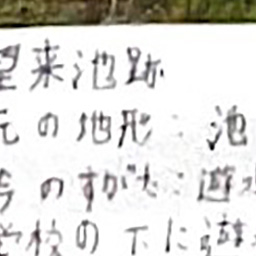 来池跡
の地形：池
のすがた：遊
校の下に遊